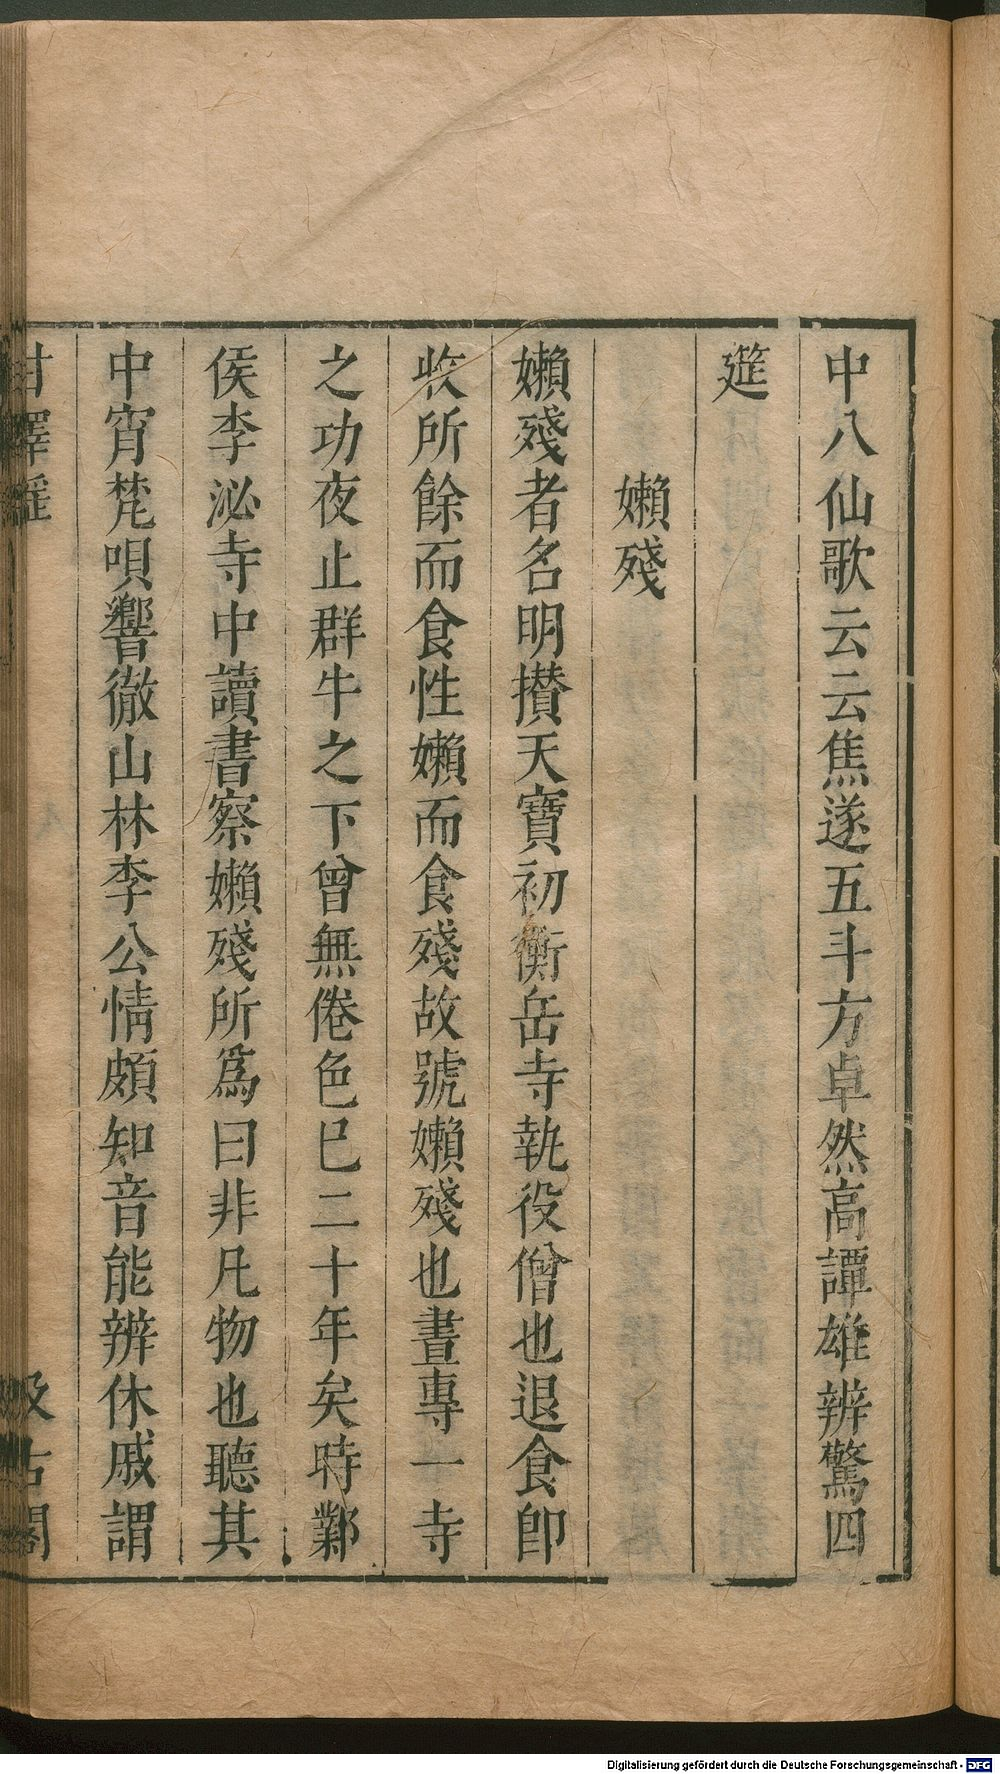 中八仙歌云云焦遂五斗方卓然高譚雄辨驚四
筵
嬾殘
嬾殘者名明攅天寶初衡岳寺執役僧也退食卽
收所餘而食性嬾而食殘故號嬾殘也晝專一寺
之功夜止群牛之下曾無倦色巳二十年矣時鄴
侯李泌寺中讀書察嬾殘所爲曰非凡物也聽其
中宵梵唄響徹山林李公情頗知音能辨休戚謂
甘澤謠
汲古閣
Digitalisierung gefördert durch die Deutsche Forschungsgemeinschaft - DFG